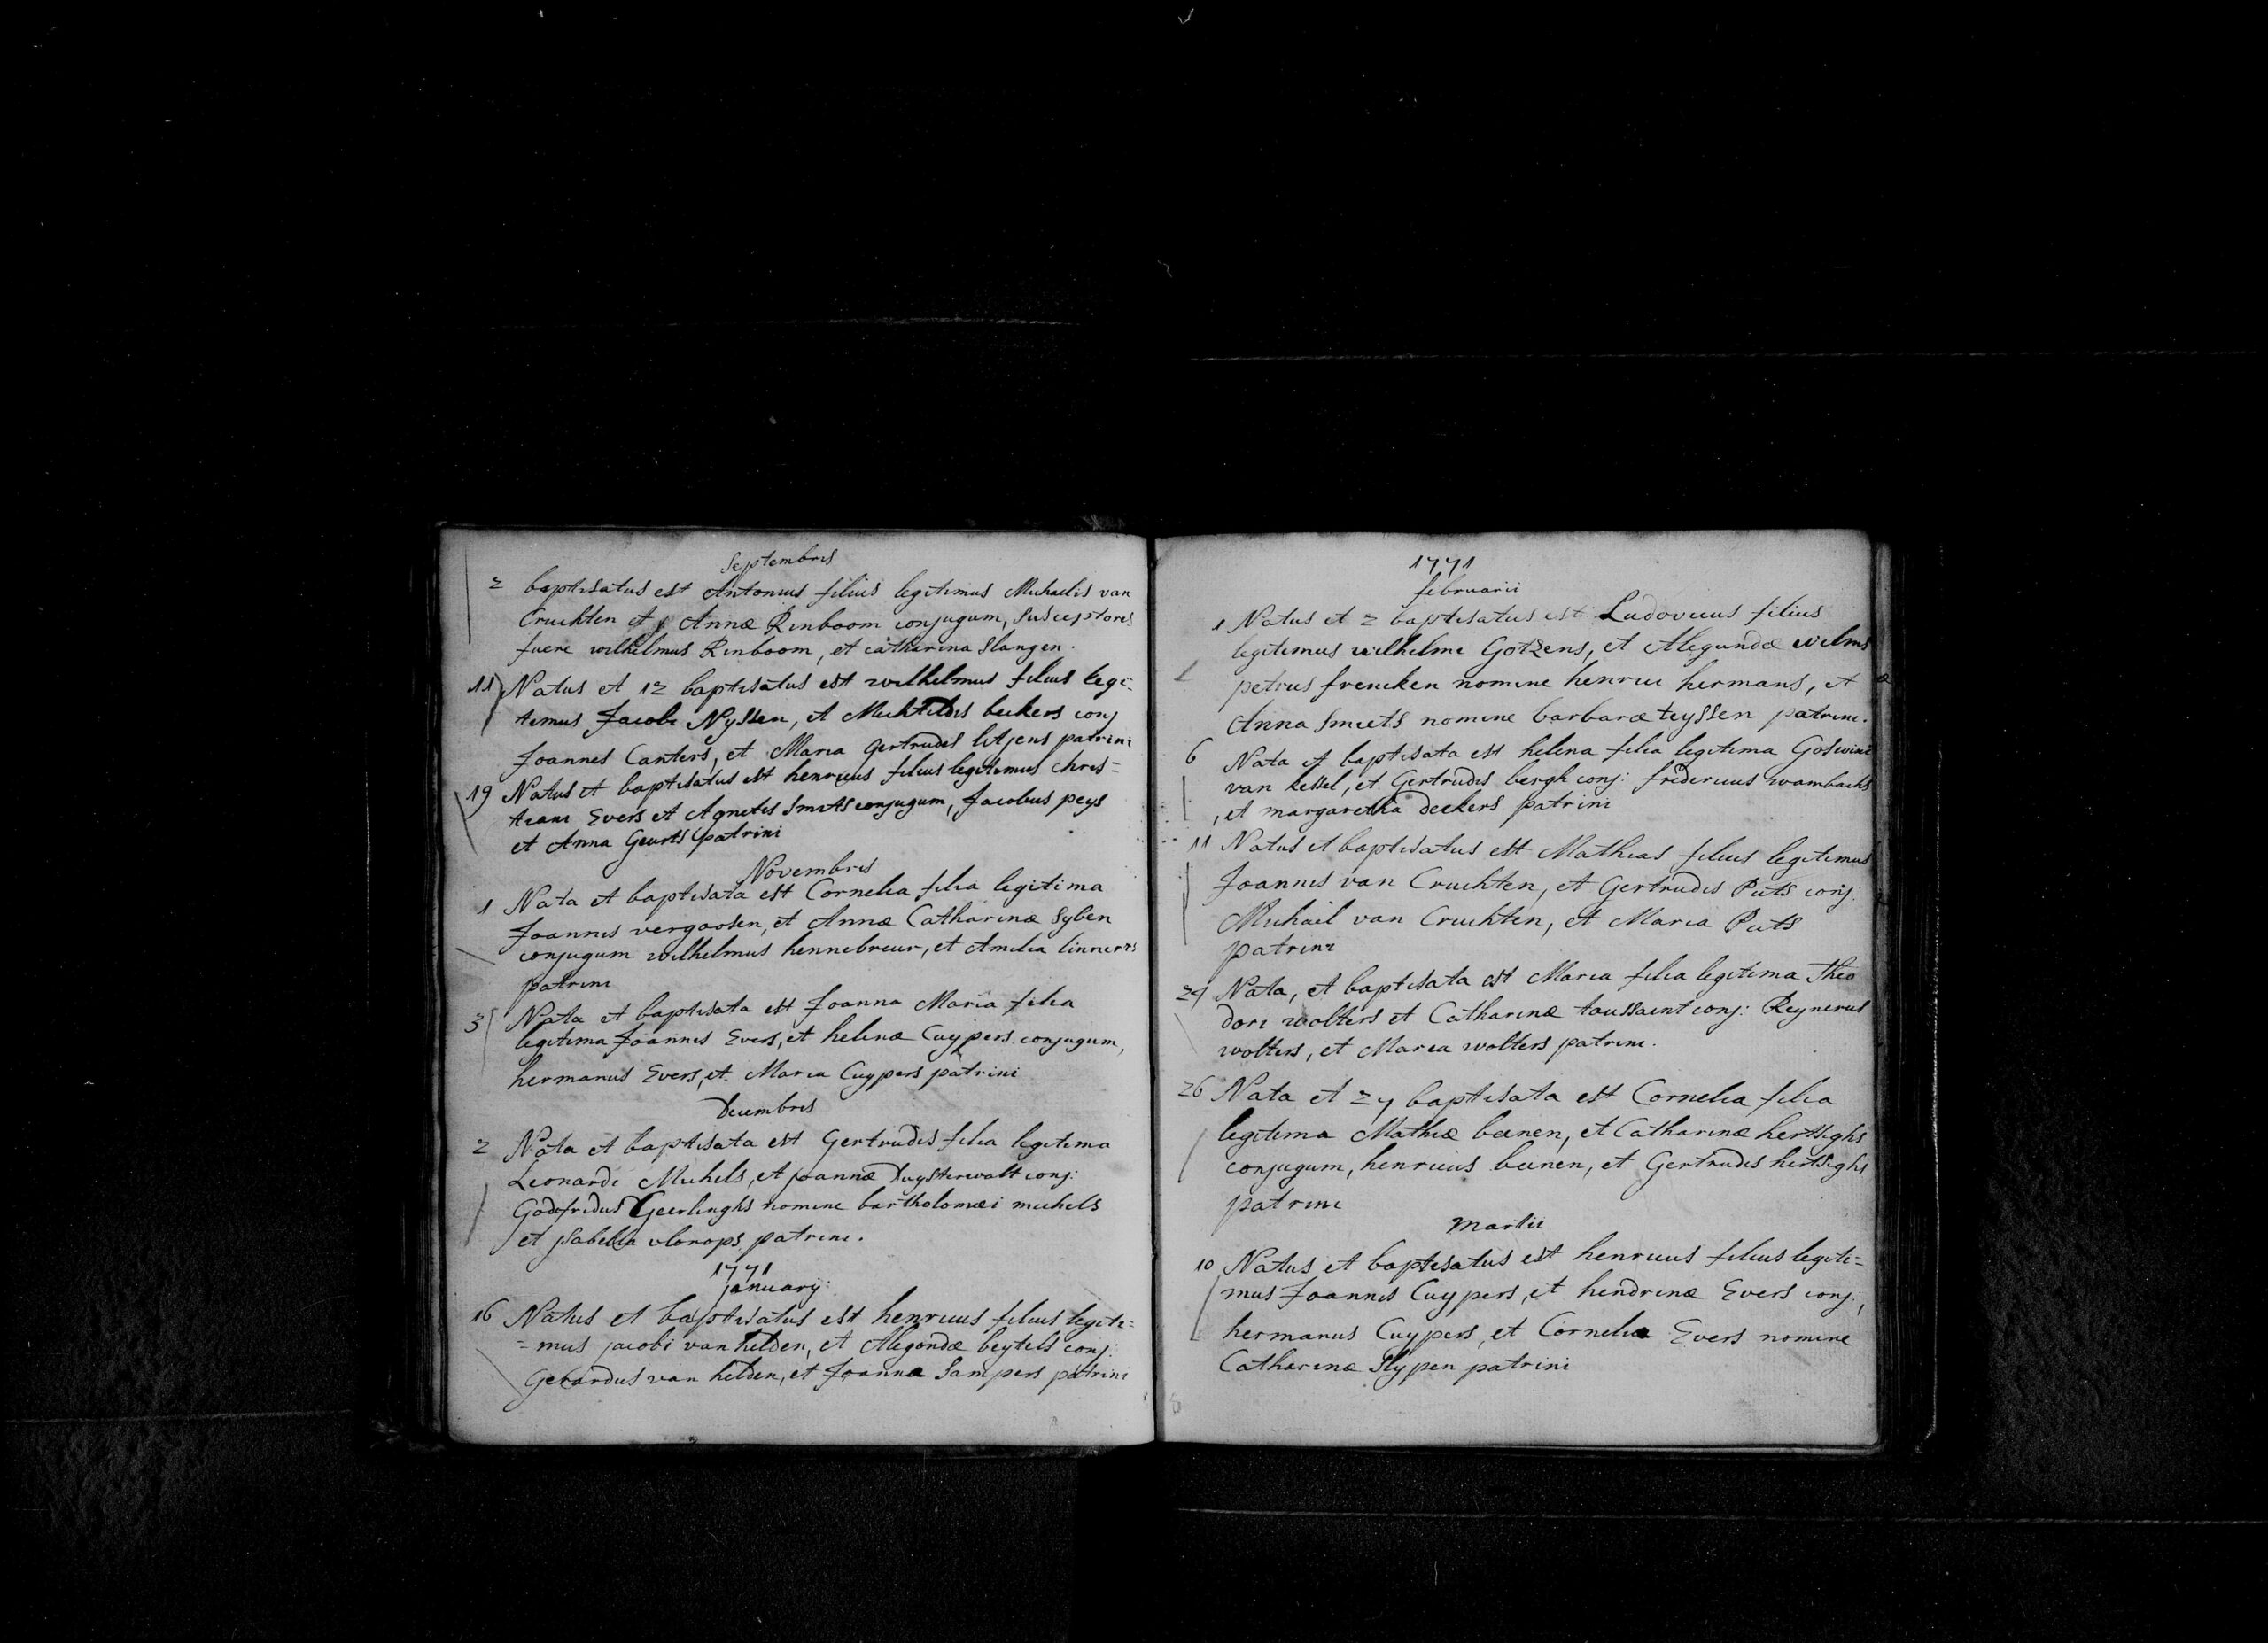 Septembris
2 baptisatus est Antonius filius legitimus Michaelis van
Cruchten et Annæ Rinboom conjugum, Susceptores
fuere wilhelmus Rinboom, et catharina Slangen.
11 Natus et 12 baptisatus est wilhelmus filius legi-
timus Jacobi Nyssen, et Mechtildis beckers conj
Joannes Canters, et Maria Gertrudes litjens patrini
19 Natus et baptisatus est henricus filius legitimus chris=
tiani Evers et Agnetis Smits conjugum, Jacobus peys
et Anna Geurts patrini
Novembris
1 Nata et baptisata est Cornelia filia legitima
Joannis vergoosen, et Annæ Catharinæ Syben
conjugum wilhelmus hennebreur, et Amelia linners
patrini
3 Nata et baptisata est Joanna Maria filia
legitima Joannis Evers, et helenæ Cuypers conjugum,
hermanus Evers, et Maria Cuypers patrini
Decembris
2 Nata et baptisata est Gertrudis filia legitima
Leonardi Michels, et joannæ Duysterwalt conj:
Godefridus Geerlinghs nomine bartholomæi michels
et jsabella vlorops patrini.
1771
january
16 Natus et baptisatus est henricus filius legiti=
=mus jacobi van helden, et Alegondæ beytels conj:
Gerardus van helden, et Joanna Sampers patrini
1771
februarii
1 Natus et 2 baptisatus est Ludovicus filius
legitimus wilhelmi Gotzens, et Alegundæ wilms
petrus frencken nomine henrici hermans, et
Anna Smeets nomine barbaræ teyssen patrini.
6 Nata et baptisata est helena filia legitima Goswini
van kessel, et Gertrudis bergh conj: fridericus wambachs
, et margaretha deckers patrini
11 Natus et baptisatus est Mathias filius legitimus
Joannis van Cruchten, et Gertrudis Puts conj:
Michail van Cruchten, et Maria Puts
patrini
24 Nata, et baptisata est Maria filia legitima Theo
dori wolters et Catharinæ toussaint conj: Reynerus
wolters, et Maria wolters patrini.
26 Nata et 27 baptisata est Cornelia filia
legitima Mathiæ beenen, et Catharinæ hertsighs
conjugum, henricus beenen, et Gertrudis hertsighs
patrini
Martii
10 Natus et baptisatus est henricus filius legiti=
mus Joannis Cuypers, et hendrinæ Evers conj:,
hermanus Cuypers, et Cornelia Evers nomine
Catharinæ Slypen patrini